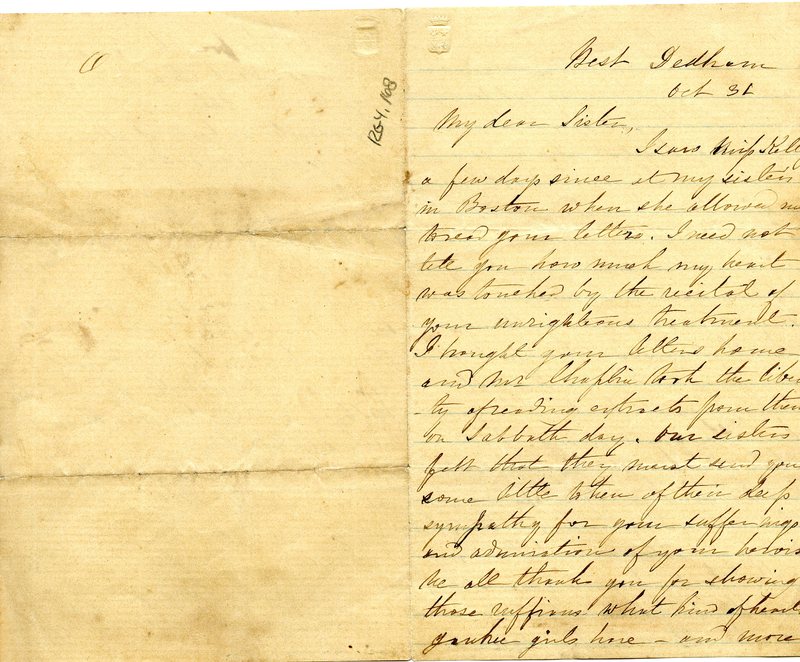 RG4, 168
West Dedham
Oct 31
My dear Sister,
I saw Miss Kell
a few days since at my sister's
in Boston when she allowed me
to read your letters. I need not
tell you how much my heart
was touched by the recital of
your unrighteous treatment.
I brought your letters home
and Mr Chaplin took the liber
-ty of reading extracts from them
on Sabbath day. Our sisters
felt that they must send you
some little token of their deep
sympathy for your sufferings
and admiration of your herois
We all thank you for showing
those ruffians what kind of hearts
yankee girls have – and more